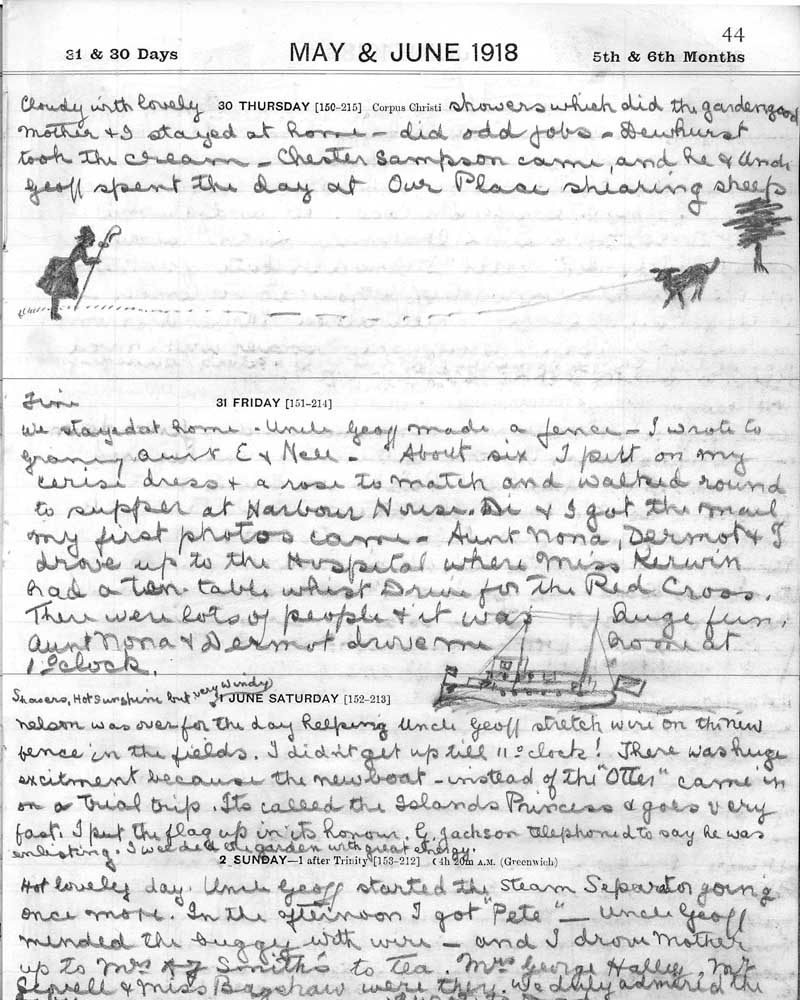 44
31 & 30 Days MAY & JUNE 1918 5th & 6th Months
Cloudy with lovely 30 THURSDAY [150-215] Corpus Christi showers which did the garden good
Mother & I stayed at home - did odd jobs - Dewhurst
took the cream - Chester Sampson came, and he & Uncle
Geoff spent the day at Our Place shearing sheep
Fine 31 FRIDAY [151-214]
We stayed at home. Uncle Geoff made a fence - I wrote to
Granny Aunt E & Nell - About six I putt on my
cerise dress & a rose to match and walked round
to supper at Harbour House. Di & I got the mail
my first photos came - Aunt Nona, Dermot & I
drove up to the Hospital where Miss Kerwin
had a ten table whist Drive for the Red Cross.
There were lots of people & it was huge fun.
Aunt Nona & Dermot drove me home at
1 o'clock.
Showers, Hot sunshine but very windy 1 JUNE SATURDAY [152-213]
Nelson was over for the day helping Uncle Geoff stretch wire on the new
fence in the fields. I didn't get up till 11 o'clock! There was huge
excitment because the new boat - instead of the "Otter" came in
on a trial trip. Its called the Islands Princess & goes very
fast. I put the flag up in its honour. G. Jackson telephoned to say he was
enlisting. I weeded the garden with great energy.
2 SUNDAY—1 after Trinity [153-212] ☾ 4h 20m A.M. (Greenwich)
Hot lovely day. Uncle Geoff started the Steam Separator going
once more. In the afternoon I got "Pete" - Uncle Geoff
mended the buggy with wire - and I drove Mother
up to Mrs A J Smith's to tea. Mrs George Halley, Mrs
& Miss Bagshaw were they. We duly admired the